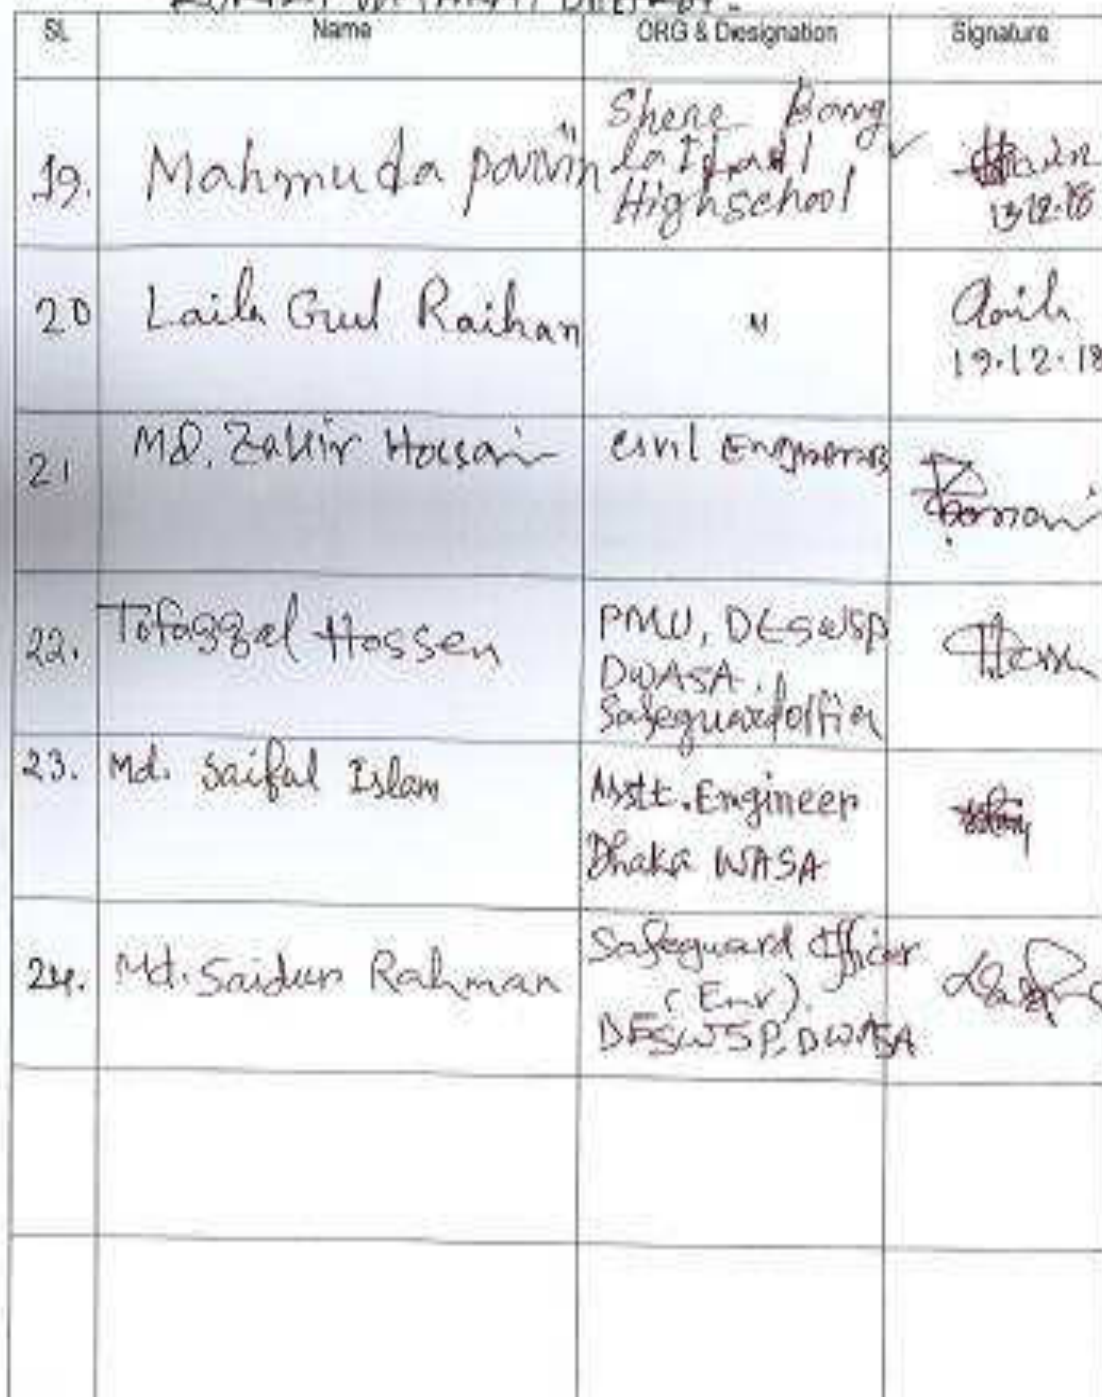 SL Name ORG & Diesignation Signature
19. Mahmuda parvin Shere Bangla High school
13.12.18
20 Laila Gul Raihan " Laila
19.12.18
21 MD. Zakir Hossain Civil Engineer
22. Tofazzel Hossen PMU, DESWSP
DWASA,
Safeguard officer
23. Md. Saiful Islam Asstt. Engineer
Dhaka WASA
24. Md. Saidur Rahman Safeguard Officer
(Env).
DESWSP, DWASA